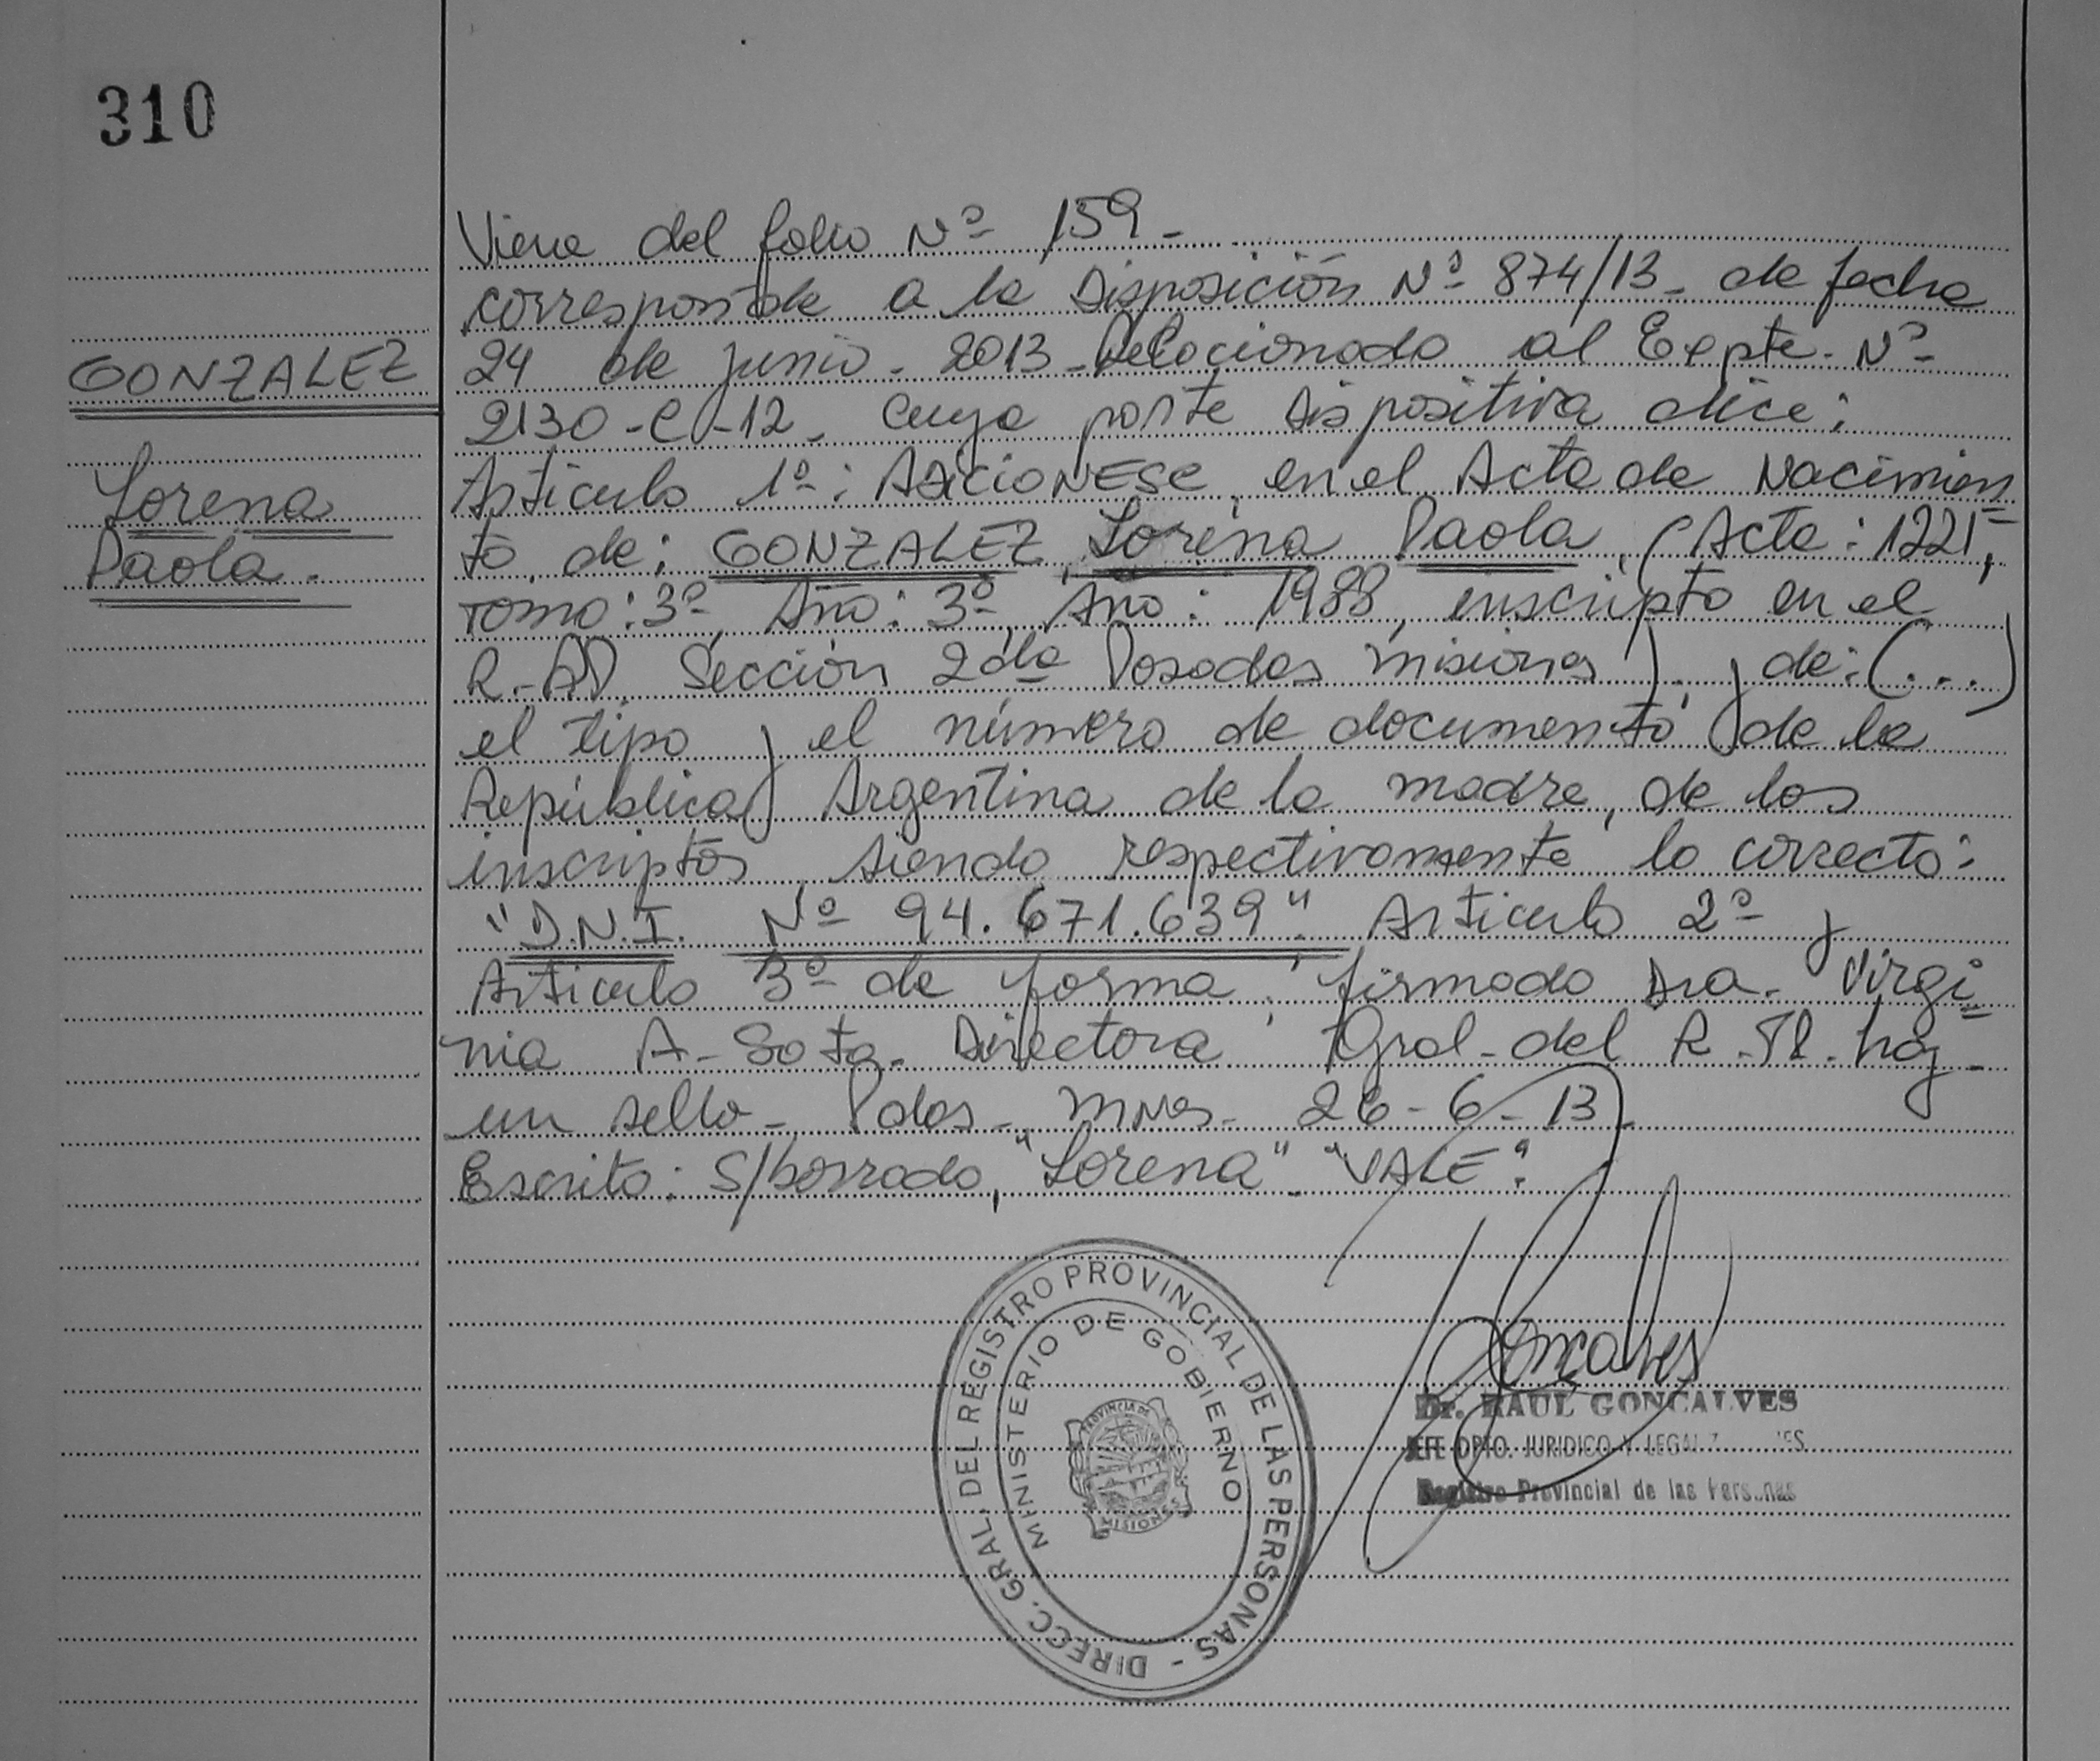 310
Viene del folio Nº 159-
corresponde a la Disposición Nº 874/13- de fecha
GONZALEZ
24 de junio - 2013- Relacionado al Expte- Nº
2130-C-12- cuya parte dispositiva dice:
Lorena
Artículo 1º: ADICIONESE en el Acta de Nacimien
Paola.
to, de: GONZALEZ, Lorena Paola, (Acta: 1221,
Tomo: 3º, Año: 3º, Año: 1988, inscripto en el
Sección 2da Posadas Misiones), y de: (...)
el tipo y el número de documento de la
República Argentina de la madre, de los
inscriptos, siendo respectivamente lo correcto:
"D.N.I. Nº 94.671.639". Artículo 2º y
Artículo 3º de forma. firmado Dra. Virgi
nia A- Sota- Directora Gral- del R. hay-
un sello- Pdas- Mnes- 26-6-13
Escrito: S/borrado, "Lorena". "VALE".
DIRECC. GRAL. DEL REGISTRO PROVINCIAL DE LAS PERSONAS -
MINISTERIO DE GOBIERNO
PROVINCIA DE
MISIONES
Goncalves
Dr. RAUL GONCALVES
JEFE DPTO. JURIDICO Y
Registro Provincial de las Personas